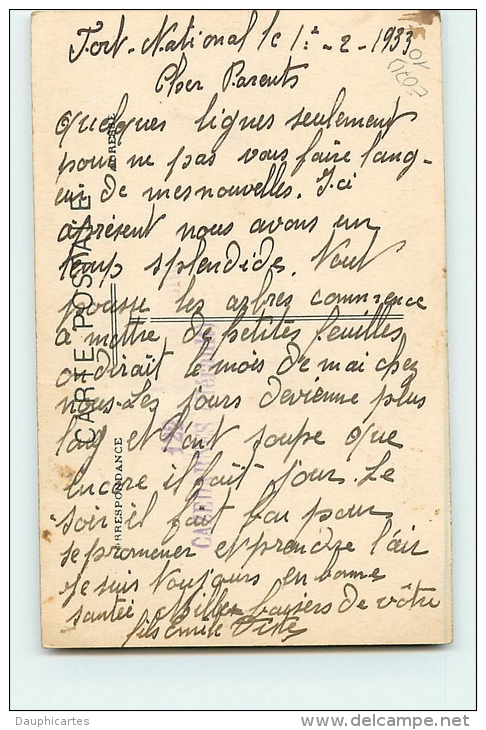 Fort-National le 1er-2-1933
Cher Parents
quelques lignes seulement
pour ne pas vous faire lang-
uir de mes nouvelles. Ici
aprèsent nous avons un
temp splendide. Tout
pousse les arbres commence
a mettre de petites feuilles
on dirait le mois de mai chez
nous. Les jours devienne plus
long et l'ont soupe que
encore il fait jour. Le
soir il fait bon pour
se promener et prendre l'air
Je suis toujours en bonne
santée Mille baysers de vôtre
fils Emile
CARTE POSTALE
ADRESSE
CORRESPONDANCE
Dauphicartes
www.delcampe.net